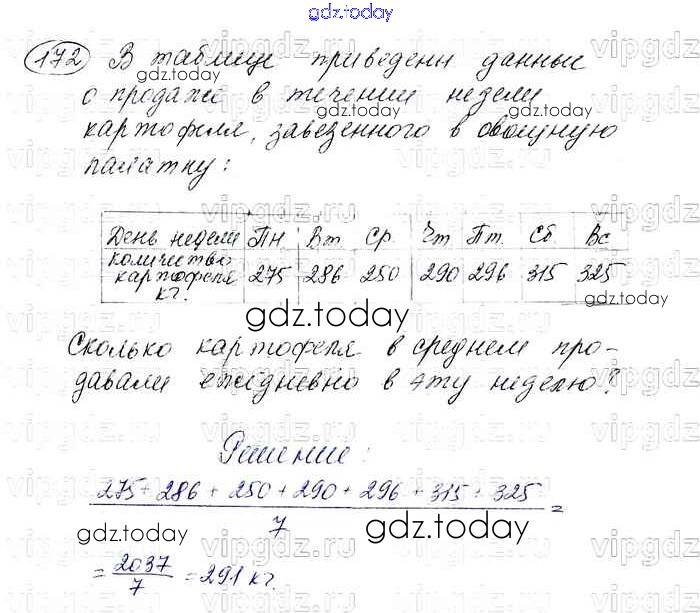 gdz.today
172 В таблице приведены данные
о продаже в течении недели
картофеля, завезенного в овощную
палатку:
День недели Пн. Вт. Ср. Чт. Пт. Сб. Вс
количество картофеля кг. 275 286 250 290 296 315 325
Сколько картофеля в среднем про-
давали ежедневно в эту неделю?
Решение:
275 + 286 + 250 + 290 + 296 + 315 + 325
7 =
= 2037/7 = 291 кг.
gdz.today
gdz.today
gdz.today
gdz.today
gdz.today
gdz.today
gdz.today
vipgdz.ru